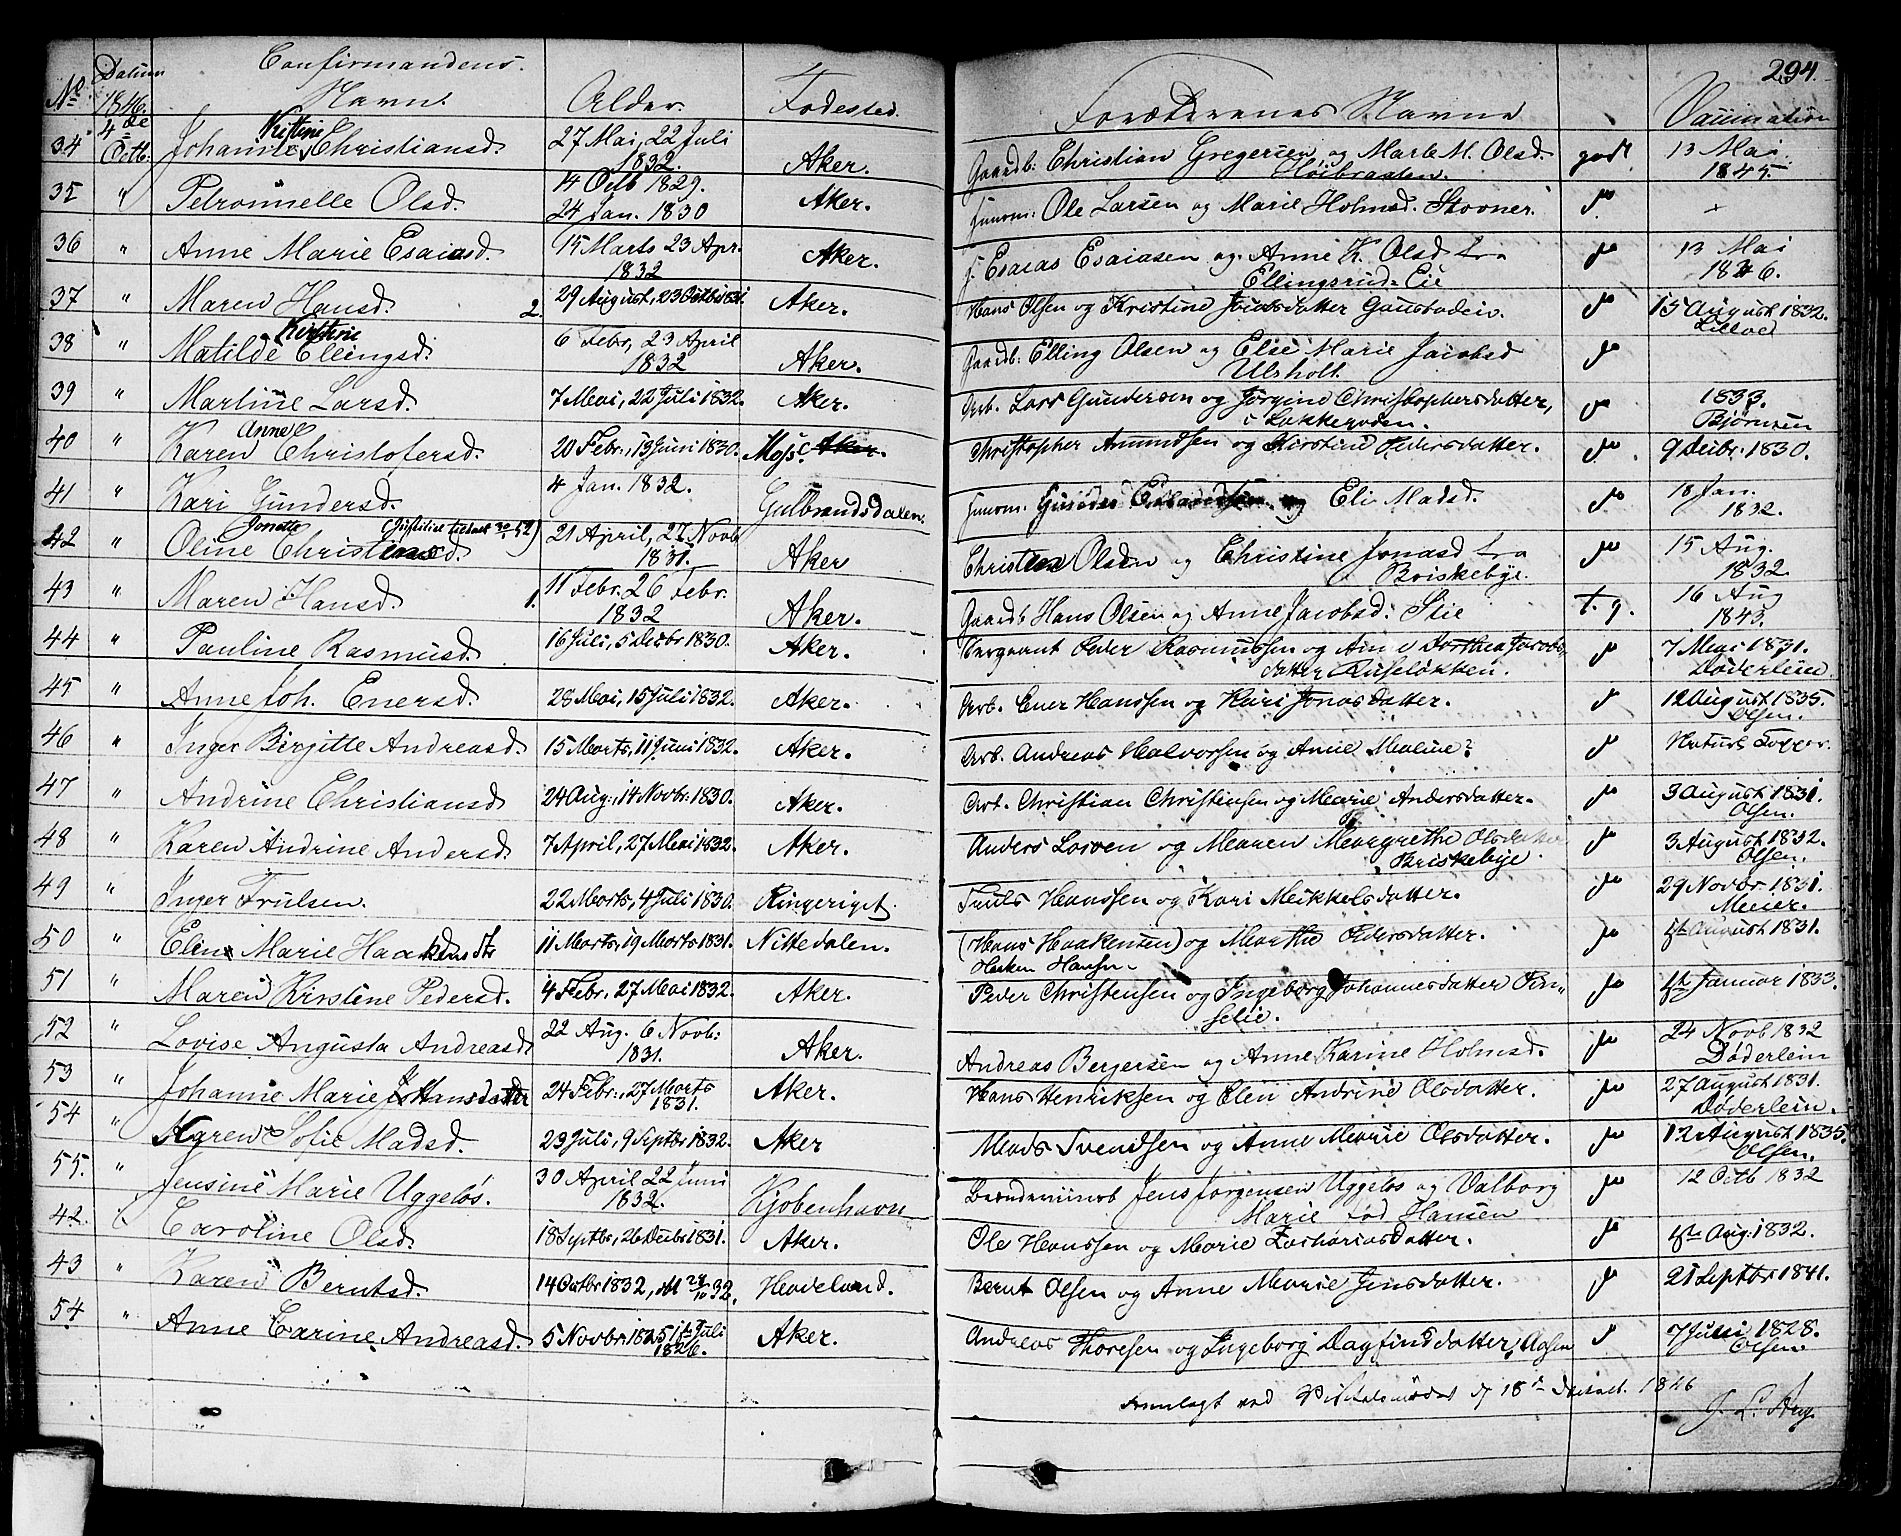 294.
No Datum 1846. Confirmandens Navn. Alder. Fødested. Forældrenes Navne Vaccination
34 4de Octb. Johanne Kristine Christiansd. 27 Mai, 22 Juli 1832. Aker. Gaardb. Christian Gregersen og Marte M. Olsd. Höibraaten. godt 13 Mai 1845.
35 " Petronnelle Olsd. 14 Octb 1829. 24 Jan. 1830 Aker. Ole Larsen og Marie Holmsd. Stovner.
36 " Anne Marie Esaiasd. 15 Marts 23 Apr. 1832 Aker. Esaias Esaiasen og Anne K. Olsd fra Ellingsrud Eie 13 Mai 1846.
37 " Maren Hansd. 2. 29 August, 23 Octbr 1831 Aker. Hans Olsen og Kristine Jonasdatter Gaustadeie. 15 August 1832.
38 " Matilde Kirstine Ellingsd. 6 Febr, 23 April 1832 Aker. Gaardb: Elling Olsen og Else Marie Jacobsd Ulsholt.
39 " Martine Larsd. 7 Mai, 22 Juli 1832. Aker. Arb. Lars Gundersen og Jörgine Christophersdatter, i Løkkeroden. 1833. Bjørnsen
40 " Karen Anne Christofersd. 20 Febr., 13 Juni 1830. Aker. Christopher Amundsen og Kirstine Pedersdatter. 9 Decbr. 1830.
41 " Kari Gundersd. 4 Jan. 1832. Gulbrandsdalen. Eli Madsd. 18 Jan. 1832.
42 " Oline Jonette Christensd. 21 April, 27 Novb 1831. Aker Christen Olsen og Christine Jonasd fra Briskebye. 15 Aug. 1832.
43 " Maren Hansd. 1. 11 Febr. 26 Febr. 1832 Aker. Gaardb Hans Olsen og Anne Jacobsd: Stie T. g. 16 Aug 1843.
44 " Pauline Rasmusd. 16 Juli, 5 Decbr 1830. Aker. Sergeant Peder Rasmussen og Anne Dorthea Jacobsdatter Ruseløkken. 7 Mai 1831. Døderlein
45 " Anne Joh. Enersd. 28 Mai, 15 Juli 1832. Aker. Arb. Ener Hanssen og Kari Jonasdatter. 12 August 1835. Olsen.
46 " Inger Birgitte Andreasd. 15 Marts, 11 Juni 1832. Aker. Arb. Andreas Halvorsen og Anne Maline? Naturl. Kopper.
47 " Andrine Christiansd 24 Aug., 14 Novbr. 1830. Aker. Arb. Christian Christensen og Marie Andersdatter. 3 August 1831. Olsen.
48 " Karen Andrine Andersd. 7 April, 27 Mai 1832. Aker. Anders Larsen og Maren Margrethe Olsdatter Briskebye. 3 August 1832. Olsen.
49 " Inger Trulsen. 22 Marts, 4 Juli 1830. Ringeriget. Truls Hanssen og Kari Mikkelsdatter. 29 Novbr 1831. Meier.
50 " Eline Marie Haakensdtr 11 Marts, 19 Marts 1831. Nittedalen. (Hans Haakensen) og Marthe Pedersdatter. Haken Hansen. August 1831.
51 " Maren Kirstine Pedersd. 4 Febr. 27 Mai 1832. Aker. Peder Christensen og Ingeborg Johannesdatter Januar 1833.
52 " Lovise Augusta Andreasd. 22 Aug. 6 Novb: 1831. Aker. Andreas Bergersen og Anne Karine Holmsd. 24 Novb 1832 Døderlein
53 " Johanne Marie Hansdatter 24 Febr., 27 Marts 1831. Aker. Hans Henriksen og Elen Andrine Olsdatter. 27 August 1831. Døderlein.
54 " Karen Sofie Madsd. 23 Juli, 9 Septbr 1832. Aker Mads Svendsen og Anne Marie Olsdatter. 12 August 1835. Olsen.
55. " Jensine Marie Uggeløs. 30 April 22 Juni 1832. Kjøbenhavn Jens Jørgensen Uggeløs og Valborg Marie fød Hansen 12 Octb 1832
42. Caroline Olsd. 18 Septbr, 26 Decbr 1831. Aker. Ole Hanssen og Marie Zachariasdatter. Aug. 1832.
43 " Karen Berntsd. 14 Octbr 1832, 32. Hadeland. Bernt Olsen og Anne Marie Jensdatter. 21 Septbr 1841.
54 " Anne Carine Andreasd. 5 Novbr 1825 Juli 1826. Aker. Andreas Thoresen og Ingeborg Dagfinsdatter, 7 Juni 1828. Olsen
Fremlagt ved 1846